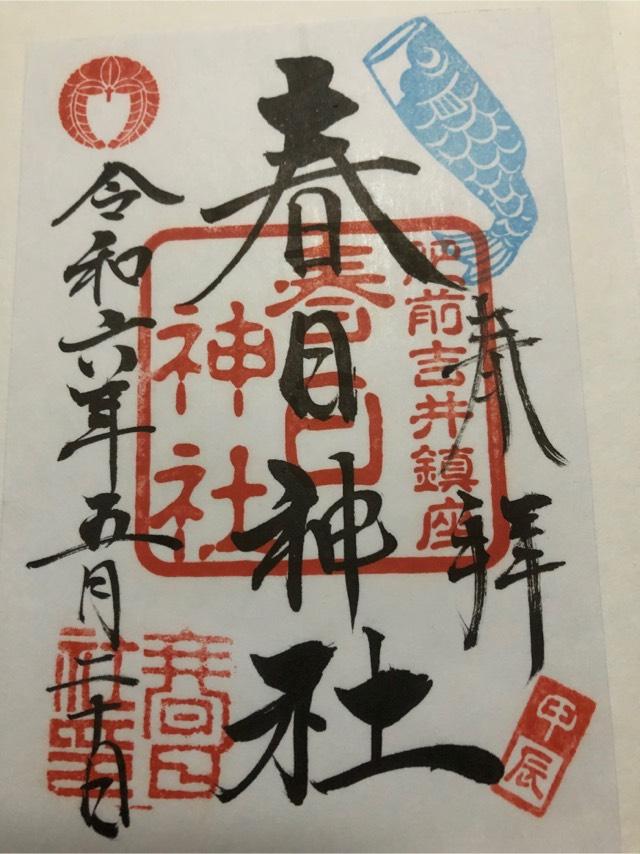 奉拝
肥前吉井鎮座
春日神社
春日神社
令和六年五月二十日
甲辰